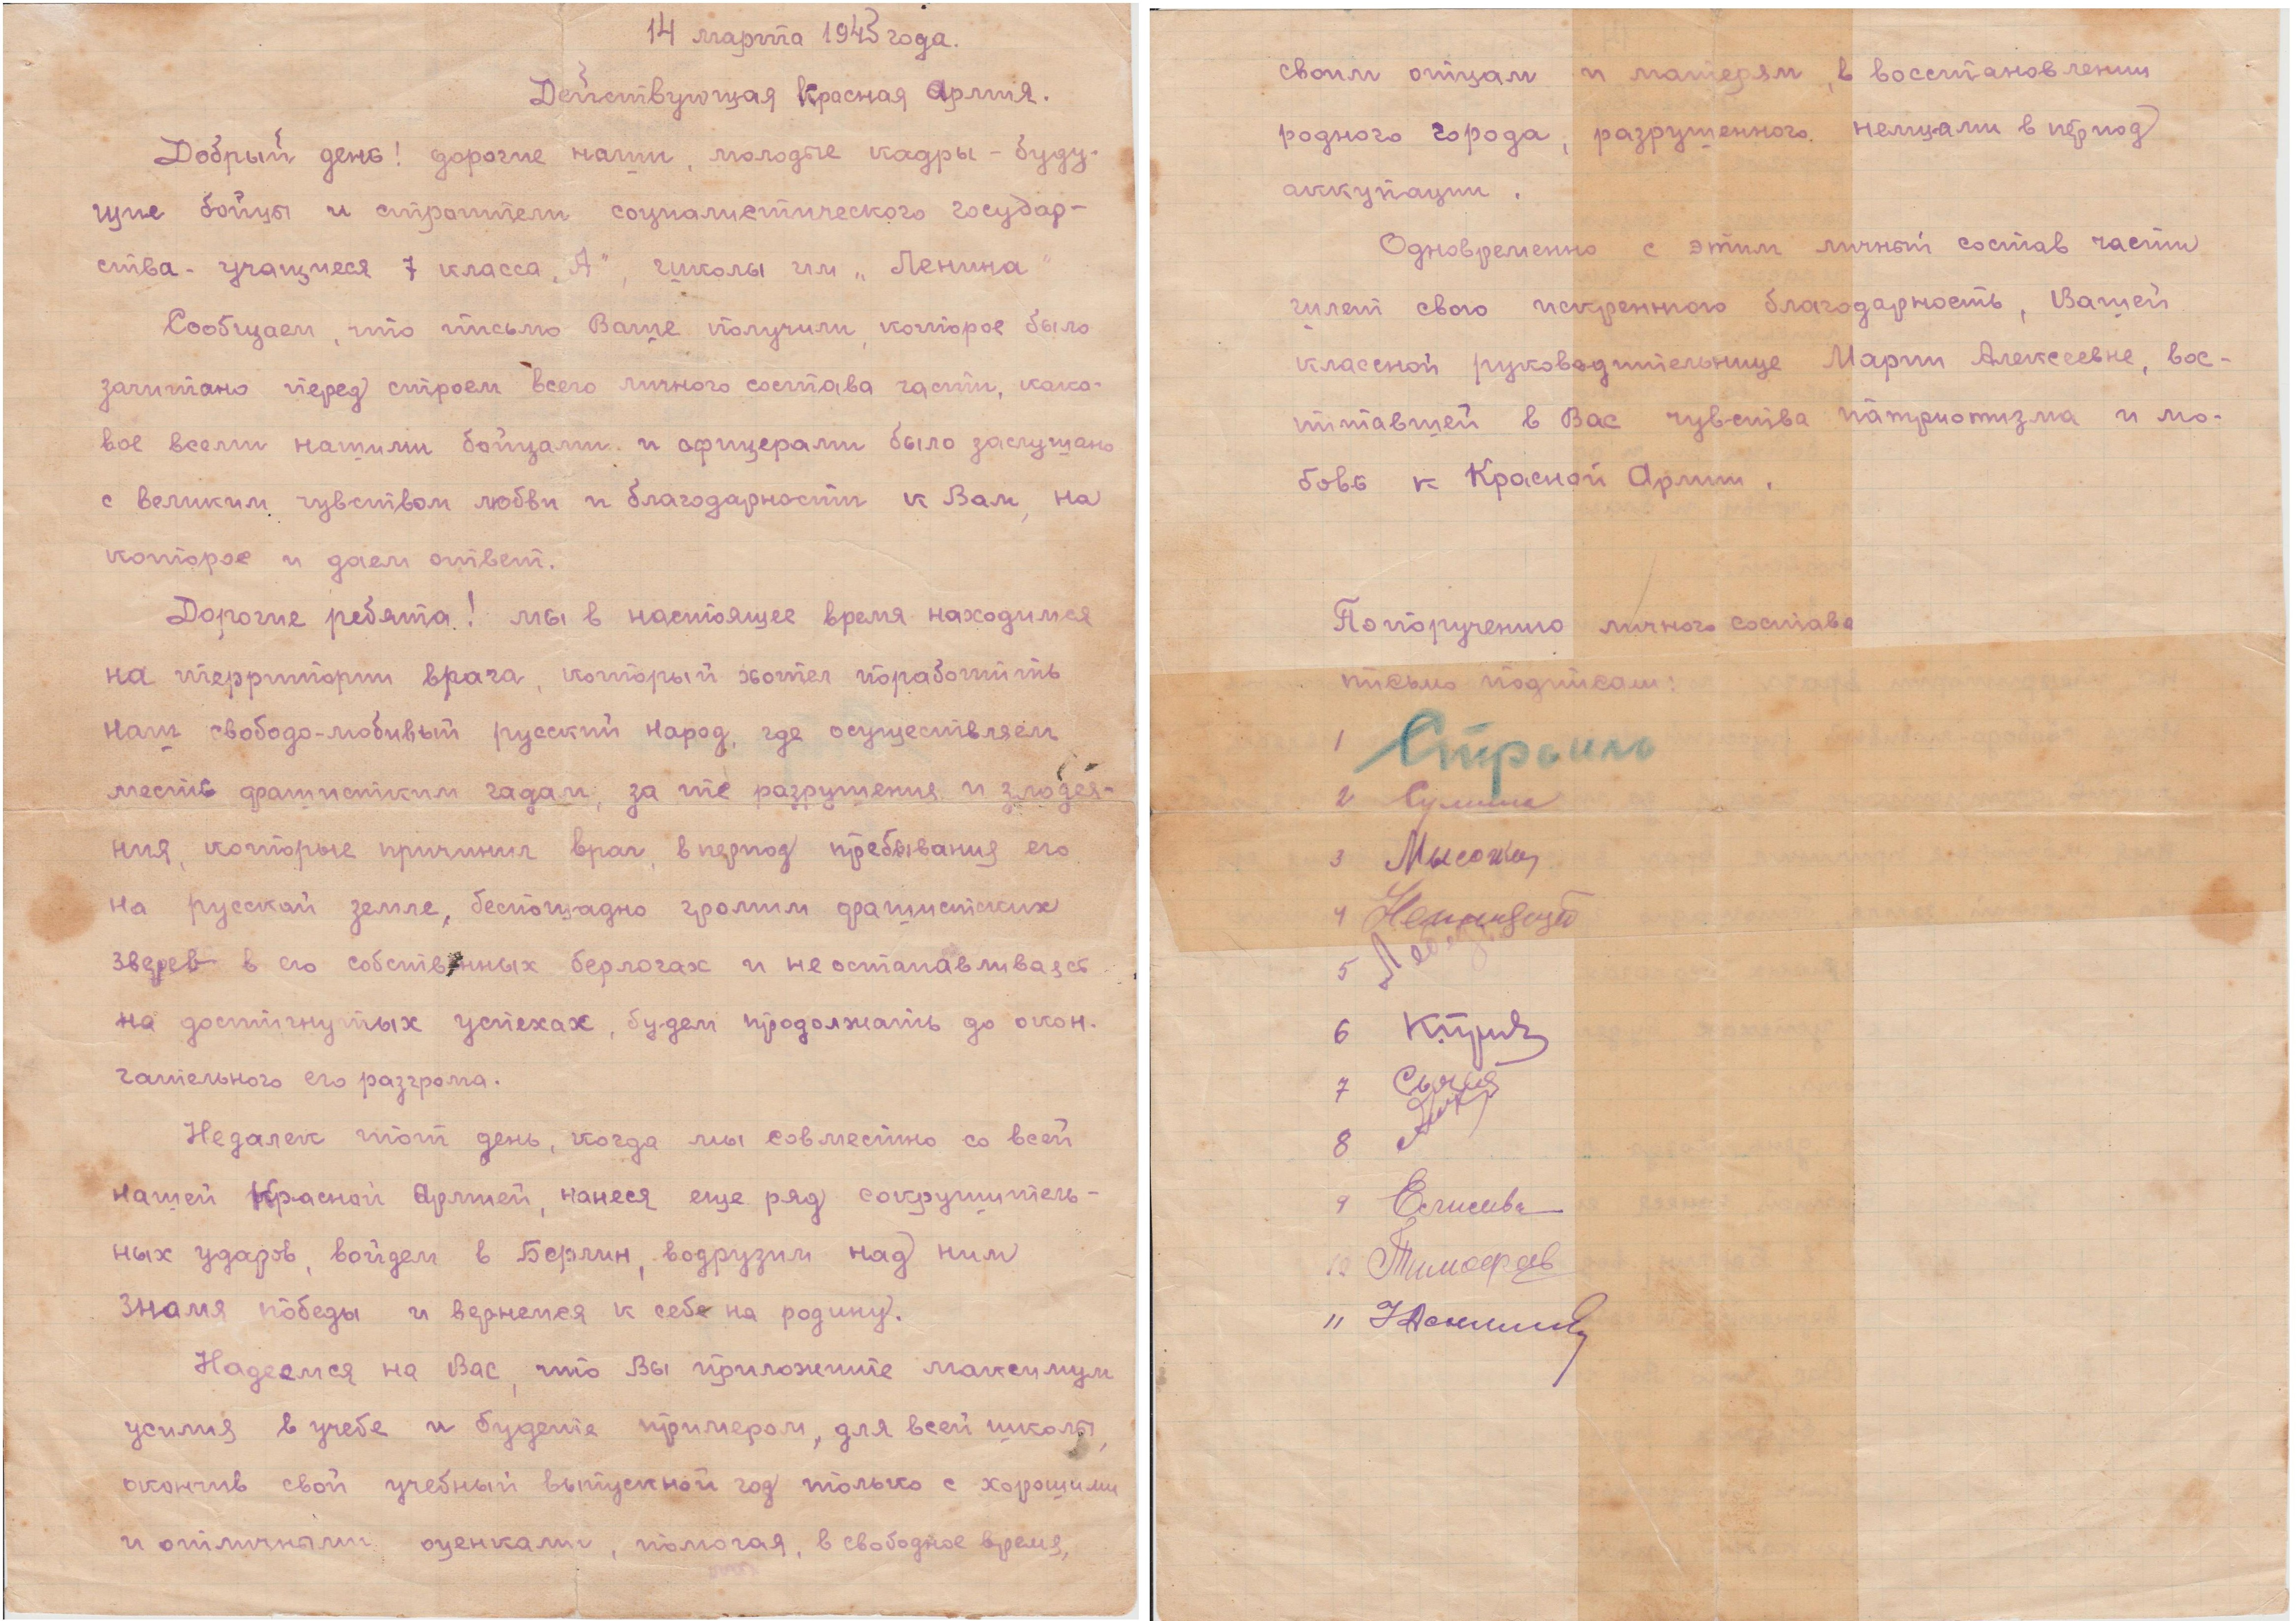 14 марта 1945 года.
Действующая Красная Армия.
Добрый день! дорогие наши, молодые кадры – буду-
щие бойцы и строители социалистического государ-
ства - учащиеся 7 класса „А", школы им „Ленина"
Сообщаем, что письмо Ваше получили, которое было
зачитано перед строем всего личного состава части, како-
вое всеми нашими бойцами и офицерами было заслушано
с великим чувством любви и благодарности к Вам, на
которое и даем ответ.
Дорогие ребята! мы в настоящее время находимся
на территории врага, который хотел поработить
наш свободо-любивый русский народ, где осуществляем
месть фашистким гадам, за те разрушения и злодея-
ния, которые причинил враг, в период пребывания его
на русской земле, беспощадно громим фашистских
зверев в его собственных берлогах и не останавливаясь
на достигнутых успехах, будем продолжать до окон-
чательного его разгрома.
Недалек тот день, когда мы совместно со всей
нашей Красной Армией, нанеся еще ряд сокрушитель-
ных ударов, войдем в Берлин, водрузим над ним
знамя победы и вернемся к себе на родину.
Надеемся на Вас, что Вы приложите максимум
усилия в учебе и будете примером, для всей школы,
окончив свой учебный выпускной год только с хорошими
и отличными оценками, помогая, в свободное время,
своим отцам и матерям, в восстановлении
родного города, разрушенного немцами в период
аккупации.
Одновременно с этим личный состав части
шлет свою искреннюю благодарность, Вашей
классной руководительнице Марии Алексеевне, вос-
питавшей в Вас чувства патриотизма и лю-
бовь к Красной Армии.
По поручению личного состава
письмо подписали:
1
2
3
4
5
6
7
8
9
10 Тимофеев
11